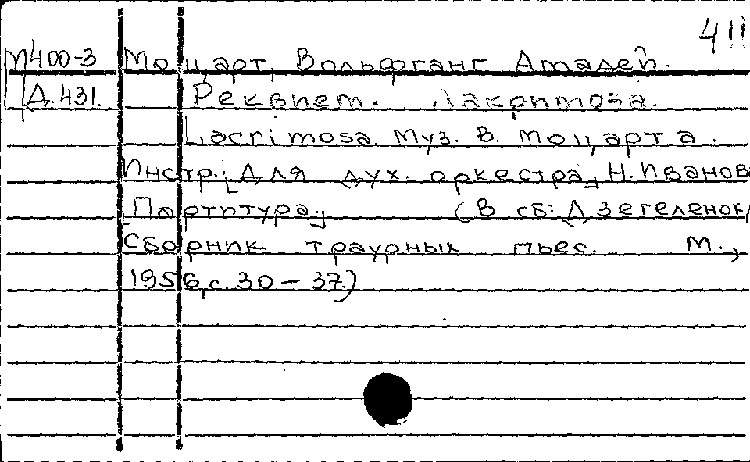 411
М400-3 Моцарт, Вольфганг Амадей.
Д.431. Реквием. Лакримоза.
Lacrimosa. Муз. В. Моцарта.
Инстр. [для дух. оркестра] Н. Иванов
[Партитура] (В сб: Дзегеленок,
Сборник траурных пьес. М.,
1956, с. 30-37)